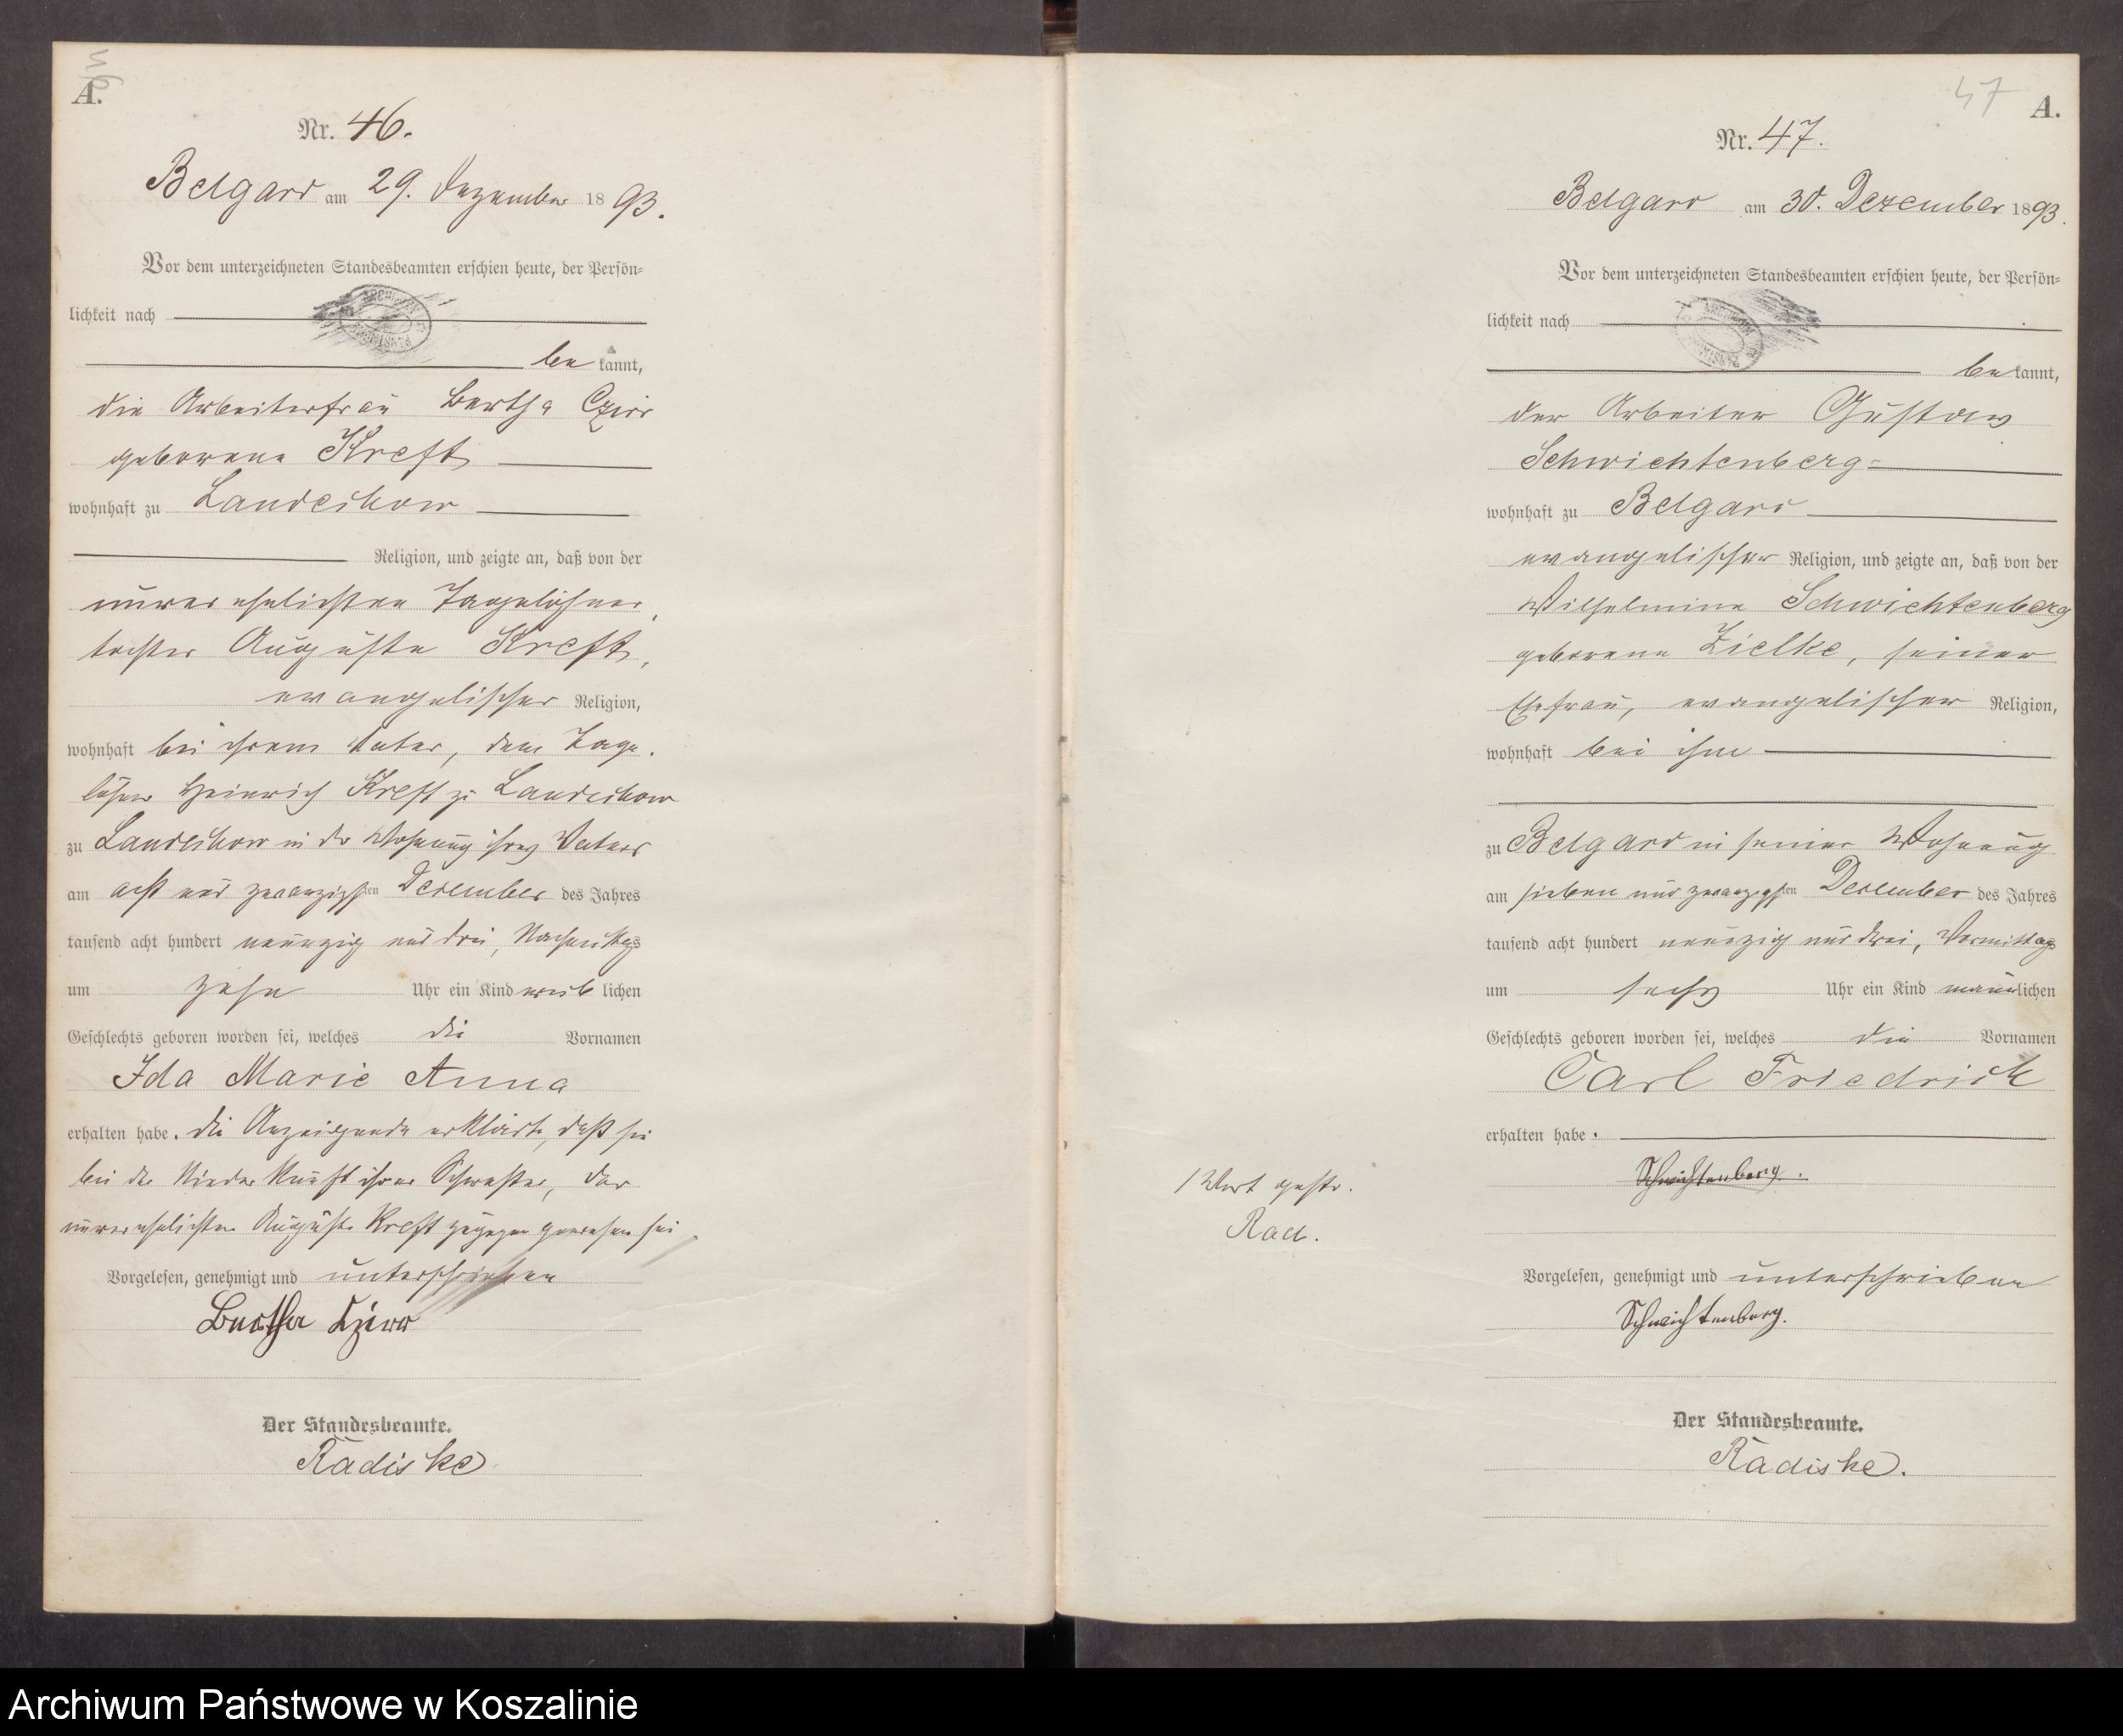 A.
46
Nr. 46.
Belgard am 29. Dezember 1893.
Vor dem unterzeichneten Standesbeamten erschien heute, der Persön-
lichkeit nach
bekannt,
die Arbeiterfrau Bertha Czirr
geborene Kreft
wohnhaft zu Landechow
Religion, und zeigte an, daß von der
unverehelichten Tagelöhner
tochter Auguste Kreft,
evangelischer Religion,
wohnhaft bei ihrem Vater, dem Tage-
löhner Heinrich Kreft zu Landechow
zu Landechow in der Wohnung ihres Vaters
am acht und zwanzigsten Dezember des Jahres
tausend acht hundert neunzig und drei, Nachmittags
um zehn Uhr ein Kind weiblichen
Geschlechts geboren worden sei, welches die Vornamen
Ida Marie Anna
erhalten habe. Die Anzeigende erklärte, daß sie
bei der Niederkunft ihrer Schwester, der
unverehelichten Auguste Kreft zugegen gewesen sei.
Vorgelesen, genehmigt und unterschrieben
Bertha Czirr
Der Standesbeamte.
Radiske
47
A.
Nr. 47.
Belgard am 30. Dezember 1893.
Vor dem unterzeichneten Standesbeamten erschien heute, der Persön-
lichkeit nach
bekannt,
der Arbeiter Gustav
Schwichtenberg
wohnhaft zu Belgard
evangelischer Religion, und zeigte an, daß von der
Wilhelmine Schwichtenberg
geborene Zielke, seiner
Ehefrau, evangelischer Religion,
wohnhaft bei ihm
zu Belgard in seiner Wohnung
am sieben und zwanzigsten Dezember des Jahres
tausend acht hundert neunzig und drei, Vormittags
um sechs Uhr ein Kind männlichen
Geschlechts geboren worden sei, welches die Vornamen
Carl Friedrich
erhalten habe.
Schwichtenberg.
1 Wort gestr.
Rad.
Vorgelesen, genehmigt und unterschrieben
Schwichtenberg.
Der Standesbeamte.
Radiske.
Archiwum Państwowe w Koszalinie